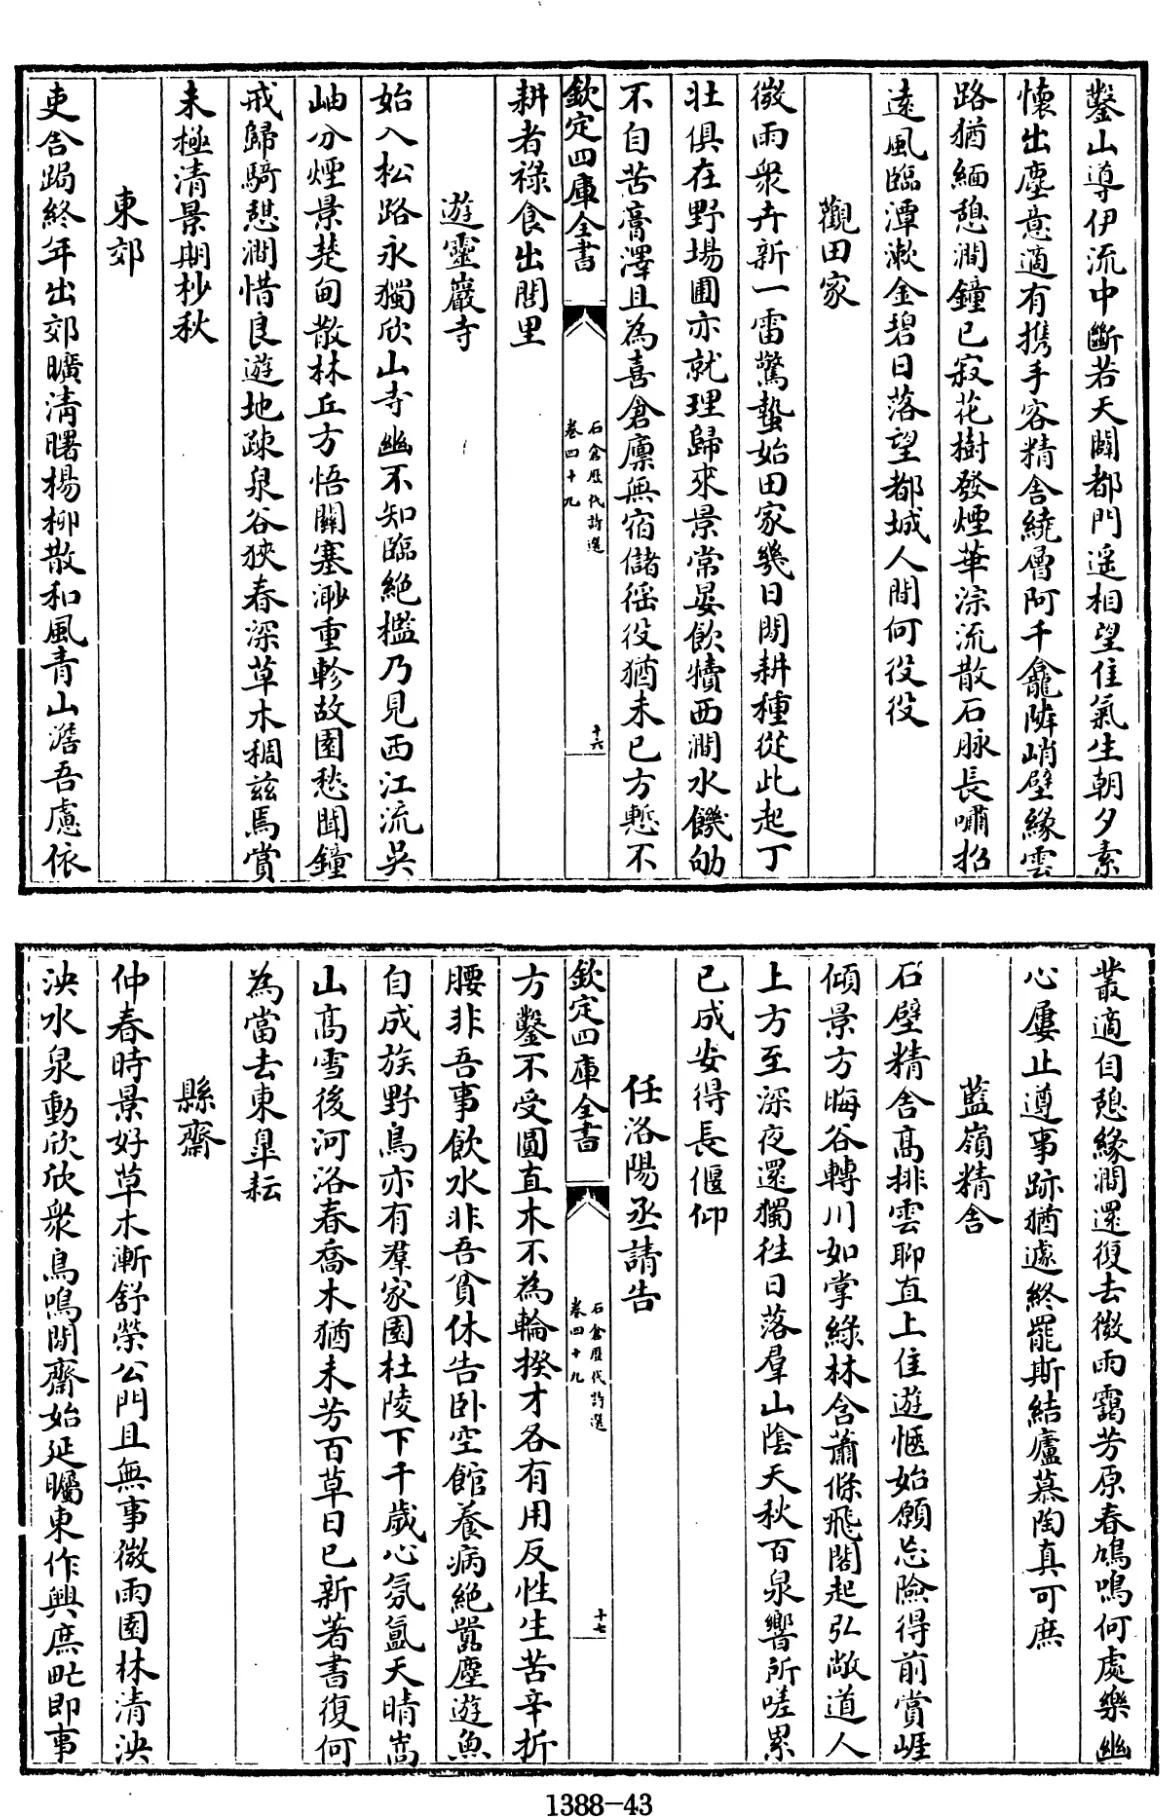 鑿山導伊流中斷若天闢都門遥相望佳氣生朝夕素
懐出塵意適有携手客精舎繞層阿千龕隣峭壁緣雲
路猶緬憩澗鐘已寂花樹發煙華淙流散石脉長嘯招
遠風臨潭漱金碧日落望都城人間何役役
觀田家
微雨衆卉新一雷驚蟄始田家幾日閒耕種從此起丁
壯俱在野場圃亦就理歸來景常晏飲犢西澗水饑劬
不自苦膏澤且為喜倉廪無宿儲徭役猶未已方慙不
欽定四庫全書
石倉歷代詩選
卷四十九
十六
耕者祿食出閭里
遊靈巖寺
始入松路永獨欣山寺幽不知臨絶檻乃見西江流吳
岫分煙景楚甸散林丘方悟關塞渺重軫故園愁聞鐘
戒歸騎憇澗惜良遊地疎泉谷狹春深草木稠兹焉賞
未極清景期杪秋
東郊
吏舎跼終年出郊曠清曙楊柳散和風青山澹吾慮依
叢適自憩緣澗還復去微雨靄芳原春鳩鳴何處樂幽
心屢止遵事跡猶遽終罷斯結廬慕陶真可庶
藍嶺精舎
石壁精舎高排雲聊直上佳遊愜始願忘險得前賞崖
傾景方晦谷轉川如掌緑林含蕭條飛閣起弘敞道人
上方至深夜還獨往日落羣山陰天秋百泉響所嗟累
已成安得長偃仰
任洛陽丞請告
欽定四庫全書
石倉歷代詩選
卷四十九
十七
方鑿不受圓直木不為輪揆才各有用反性生苦辛折
腰非吾事飲水非吾貧休告卧空館養病絶囂塵遊魚
自成族野鳥亦有羣家園杜陵下千歲心氛氲天晴嵩
山髙雪後河洛春喬木猶未芳百草日已新著書復何
為當去東皐耘
縣齋
仲春時景好草木漸舒榮公門且無事微雨園林清泱
泱水泉動欣欣衆鳥鳴閒齋始延矚東作興庶甿即事
1388-43